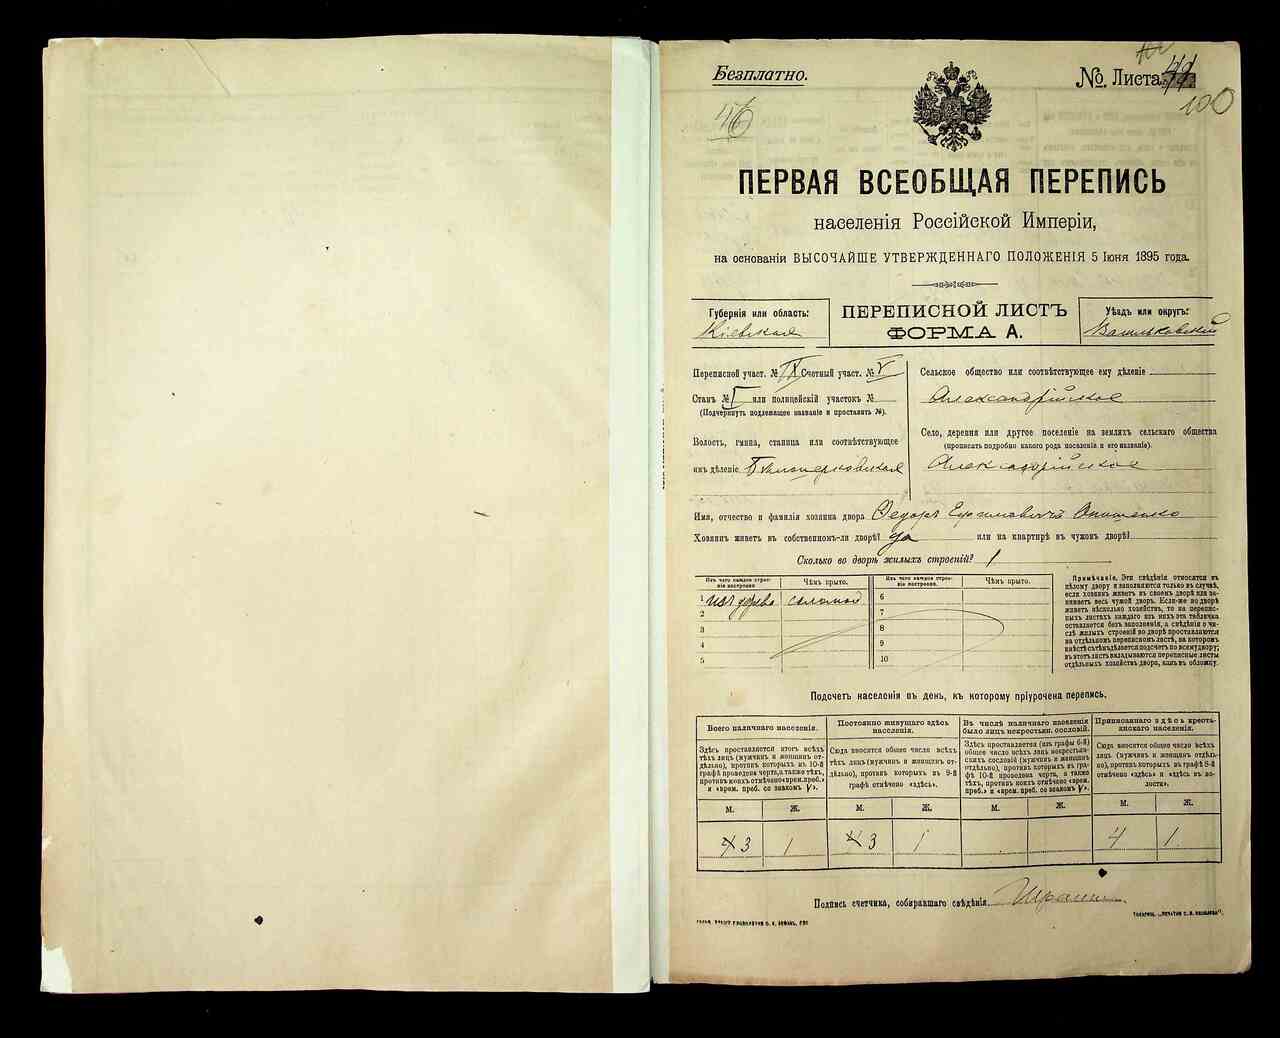 Безплатно.
№ Листа 41
100
46
ПЕРВАЯ ВСЕОБЩАЯ ПЕРЕПИСЬ
населенія Россійской Имперіи,
на основаніи ВЫСОЧАЙШЕ УТВЕРЖДЕННАГО ПОЛОЖЕНІЯ 5 Іюня 1895 года.
Губернія или область:
Кіевская
ПЕРЕПИСНОЙ ЛИСТЪ
ФОРМА А.
Уѣздъ или округъ:
Васильковскій
Переписной участ. № IX Счетный участ. № V
Станъ № I или полицейскій участокъ №
(Подчеркнуть подлежащее названіе и проставить №).
Волость, гмина, станица или соотвѣтствующее
имъ дѣленіе Бѣлоцерковская
Сельское общество или соотвѣтствующее ему дѣленіе
Александрійское
Село, деревня или другое поселеніе на земляхъ сельскаго общества
(прописать подробно какого рода поселеніе и его названіе).
Александрійское
Имя, отчество и фамилія хозяина двора Федоръ Ефимовичъ Онищенко
Хозяинъ живетъ въ собственномъ-ли дворѣ? да или на квартирѣ въ чужомъ дворѣ?
Сколько во дворѣ жилыхъ строеній? 1
Изъ чего каждое строеніе построено. Чѣмъ крыто. Изъ чего каждое строеніе построено. Чѣмъ крыто.
1 изъ дерева соломой 6
2 7
3 8
4 9
5 10
Примѣчаніе. Эти свѣдѣнія относятся къ
цѣлому двору и заполняются только въ случаѣ,
если хозяинъ живетъ въ своемъ дворѣ или занимаетъ
весь чужой дворъ. Если-же во дворѣ
живетъ нѣсколько хозяйствъ, то на переписныхъ
листахъ каждаго изъ нихъ эта табличка
оставляется безъ заполненія, а свѣдѣнія о числѣ
жилыхъ строеній во дворѣ проставляются
на отдѣльномъ переписномъ листѣ, на которомъ
вмѣстѣ съ тѣмъ дѣлается подсчетъ по всему двору;
въ этотъ листъ вкладываются переписные листы
отдѣльныхъ хозяйствъ двора, какъ въ обложку.
Подсчетъ населенія въ день, къ которому пріурочена перепись.
Всего наличнаго населенія.
Здѣсь проставляется итогъ всѣхъ
тѣхъ лицъ (мужчинъ и женщинъ отдѣльно),
противъ которыхъ въ 10-й
графѣ проведена черта, а также тѣхъ,
противъ коихъ отмѣчено «врем. преб.»
и «врем. преб. со знакомъ V».
М. Ж.
4 3 1
Постоянно живущаго здѣсь населенія.
Сюда вносится общее число всѣхъ
тѣхъ лицъ (мужчинъ и женщинъ отдѣльно),
противъ которыхъ въ 9-й
графѣ отмѣчено «здѣсь».
М. Ж.
4 3 1
Въ числѣ наличнаго населенія
было лицъ некрестьян. сословій.
Здѣсь проставляется (изъ графы 6-й)
общее число всѣхъ лицъ некрестьянскихъ
сословій (мужчинъ и женщинъ
отдѣльно), противъ которыхъ въ графѣ
10-й проведена черта, а также
тѣхъ, противъ коихъ отмѣчено «врем.
преб.» и «врем. преб. со знакомъ V».
М. Ж.
Приписаннаго здѣсь крестьянскаго населенія.
Сюда вносится общее число всѣхъ
лицъ (мужчинъ и женщинъ отдѣльно),
противъ которыхъ въ графѣ 8-й
отмѣчено «здѣсь» и «здѣсь въ волости».
М. Ж.
4 1
Подпись счетчика, собиравшаго свѣдѣнія